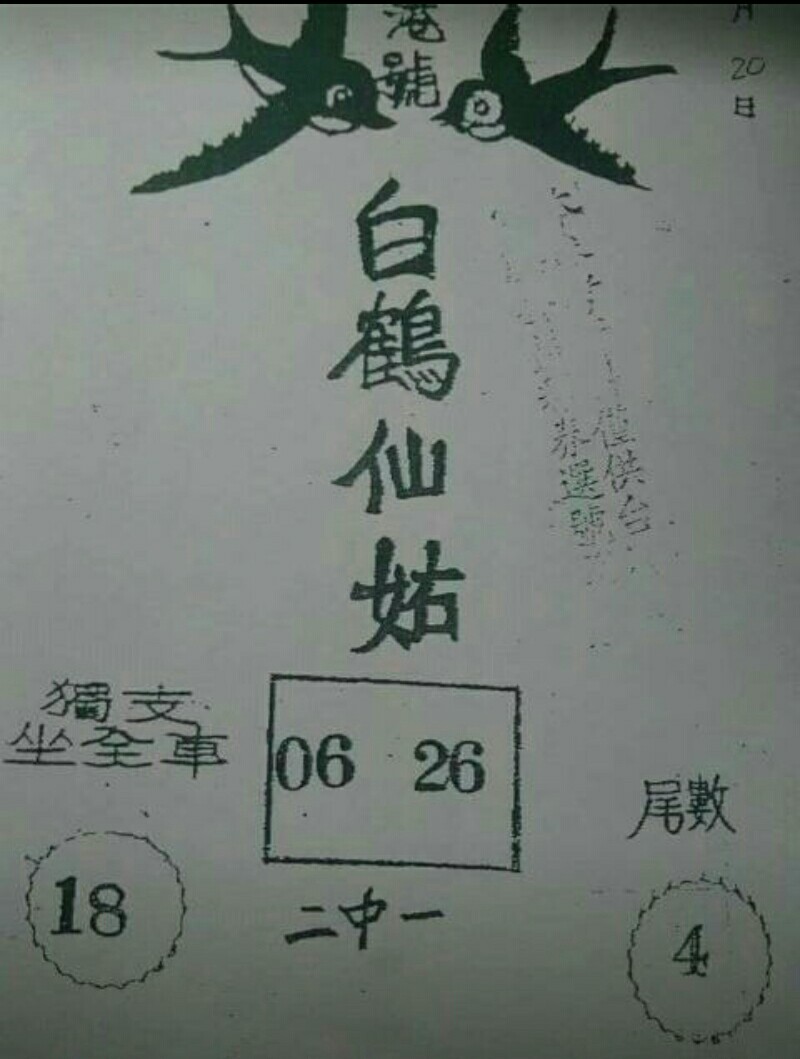 港號
月
20
日
白鶴仙姑
僅供台
券選號
獨支
坐全車
06 26
尾數
18
二中一
4